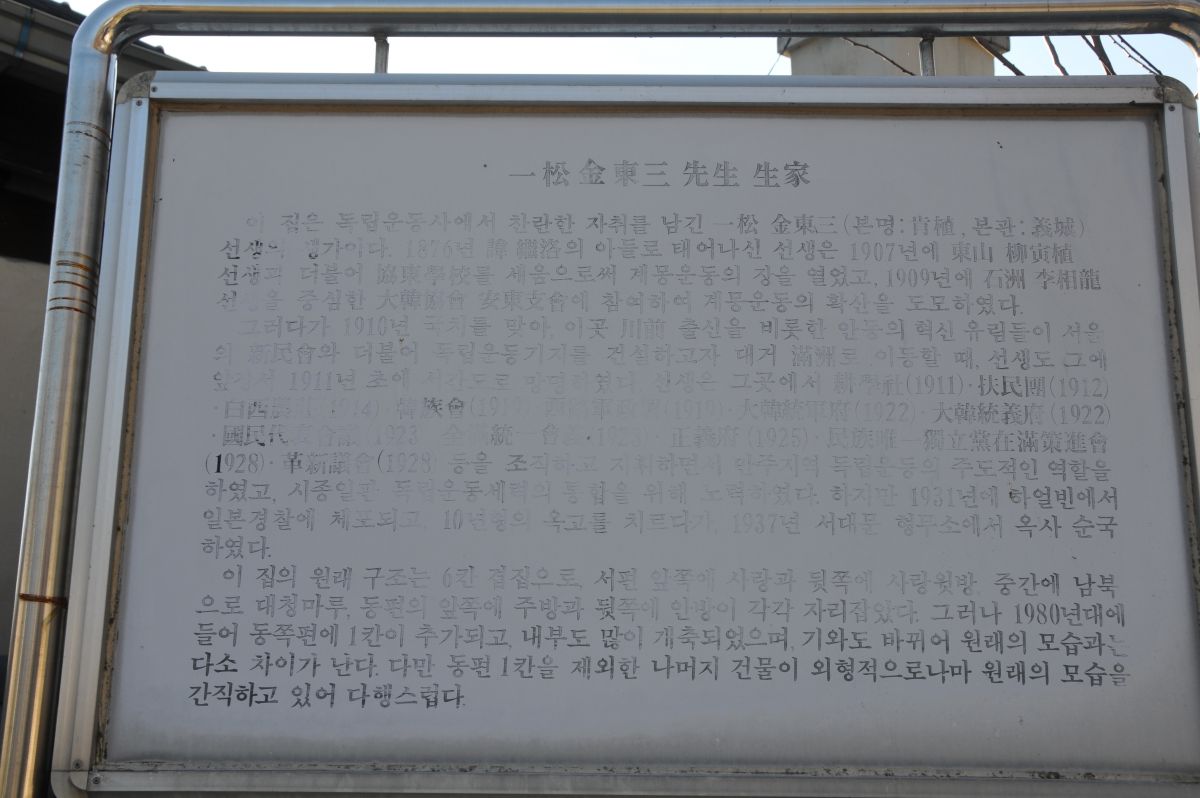 一松 金東三 先生 生家
이 집은 독립운동사에서 찬란한 자취를 남긴 一松 金東三(본명:肯植, 본관:義城)
선생의 생가이다. 1876년 諱 繼洛의 아들로 태어나신 선생은 1907년에 東山 柳寅植
선생과 더불어 協東學校를 세움으로써 계몽운동의 장을 열었고, 1909년에 石洲 李相龍
선생을 중심한 大韓協會 安東支會에 참여하여 계몽운동의 확산을 도모하였다.
그러다가 1910년 국치를 맞아, 이곳 川前 출신을 비롯한 안동의 혁신 유림들이 서울
의 新民會와 더불어 독립운동기지를 건설하고자 대거 滿洲로 이동할 때, 선생도 그에
앞장서 1911년 초에 서간도로 망명하였다. 선생은 그곳에서 耕學社(1911)·扶民團(1912)
·白西 (1914)·韓族會(191 西 軍政 (1919) 大韓統軍府(1922)·大韓統義府(1922)
·國民代表會議(1923 全滿統一會 ·正義府(1925)·民族唯一獨立黨在滿策進會
(1928)·革新議會(1928) 등을 조직하고 지휘하면서 만주지역 독립운동의 주도적인 역할을
하였고, 시종일관 독립운동세력의 통합을 위해 노력하였다. 하지만 1931년에 하얼빈에서
일본경찰에 체포되고, 10년형의 옥고를 치르다가, 1937년 서대문 형무소에서 옥사 순국
하였다.
이 집의 원래 구조는 6칸 겹집으로, 서편 앞쪽에 사랑과 뒷쪽에 사랑윗방, 중간에 남북
으로 대청마루, 동편의 앞쪽에 주방과 뒷쪽에 안방이 각각 자리잡았다. 그러나 1980년대에
들어 동쪽편에 1칸이 추가되고, 내부도 많이 개축되었으며, 기와도 바뀌어 원래의 모습과는
다소 차이가 난다. 다만 동편 1칸을 제외한 나머지 건물이 외형적으로나마 원래의 모습을
간직하고 있어 다행스럽다.